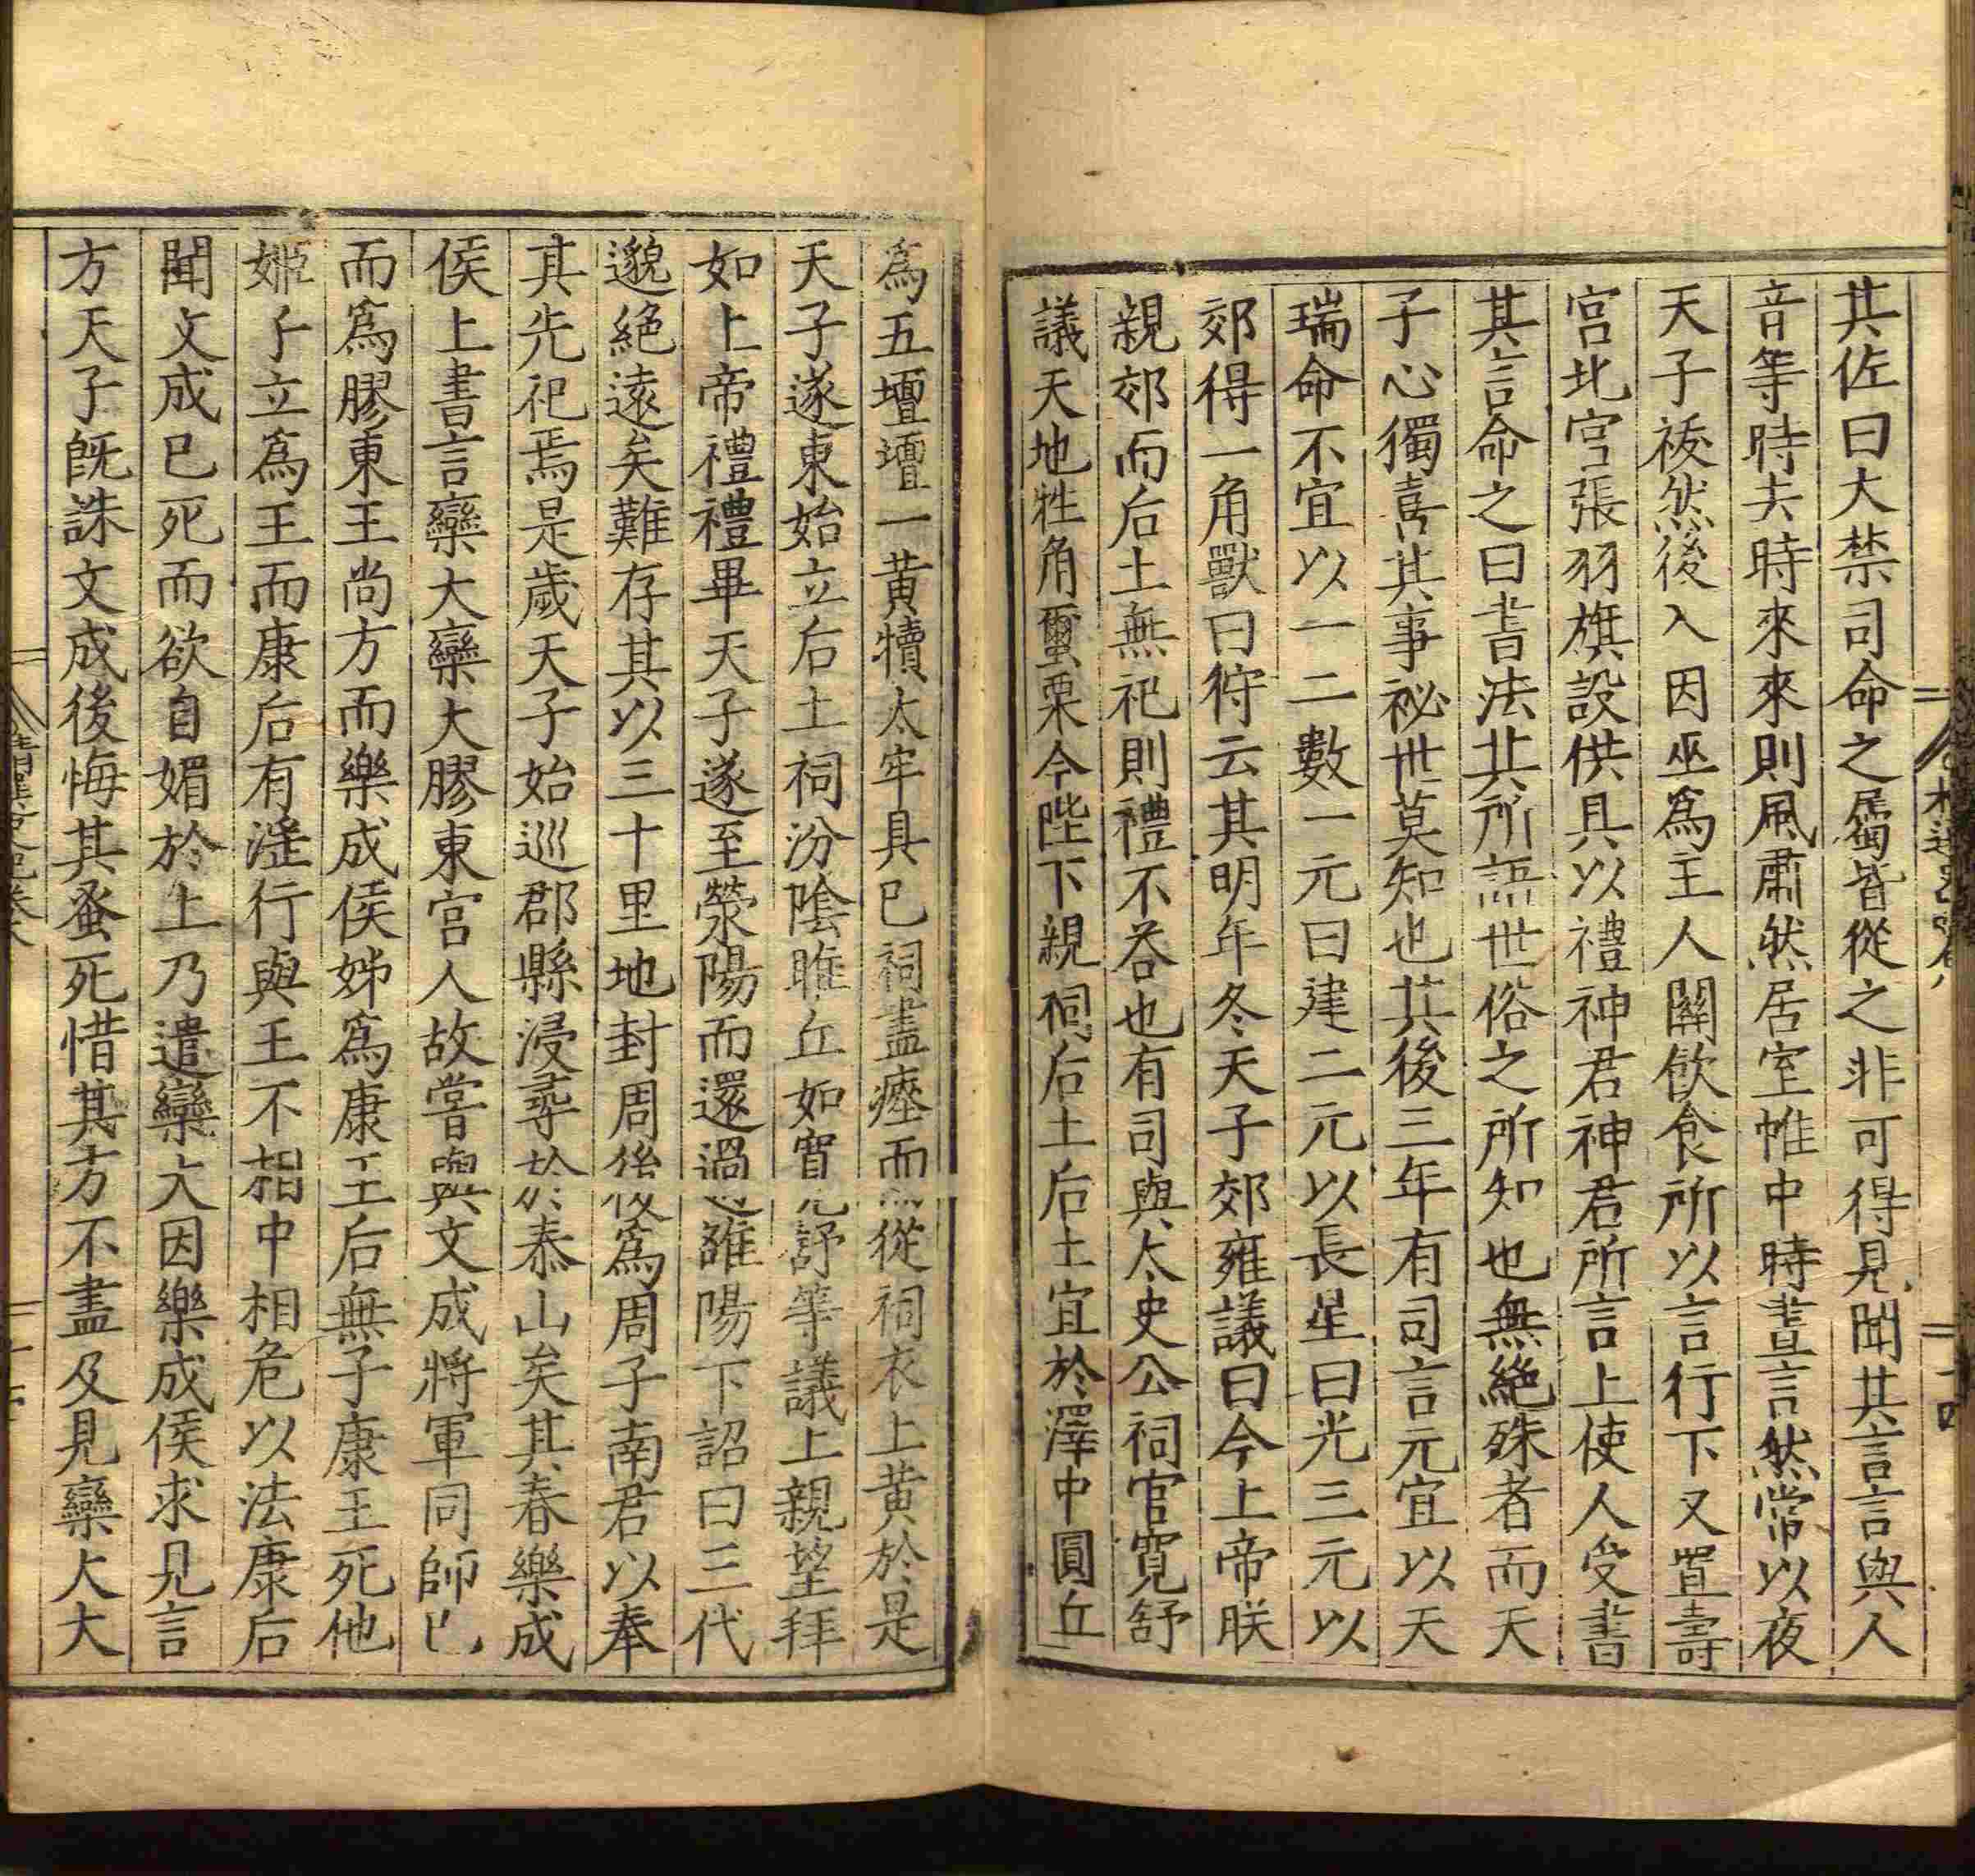 其佐曰大禁司命之屬皆從之非可得見聞其言言與人
音等時去時來來則風肅然居室帷中時晝言然常以夜
天子祓然後入因巫爲主人關飮食所以言行下又置壽
宫北宫張羽旗設供具以禮神君神君所言上使人受書
其言命之曰書法其所語世俗之所知也無絶殊者而天
子心獨喜其事祕世莫知也其後三年有司言元宜以天
瑞命不宜以一二數一元曰建二元以長星曰光三元以
郊得一角獸曰狩云其明年冬天子郊雍議曰今上帝朕
親郊而后土無祀則禮不荅也有司與太史公祠官寬舒
議天地牲角蠒栗今陛下親祠后土后土宜於澤中圓丘
爲五壇壇一黄犢太牢具已祠盡瘞而從祠衣上黄於是
天子遂東始立后土祠汾陰脽丘如寬舒等議上親望拜
如上帝禮禮畢天子遂至滎陽而還過雒陽下詔曰三代
邈絶遠矣難存其以三十里地封周後爲周子南君以奉
其先祀焉是歲天子始巡郡縣浸尋於泰山矣其春樂成
侯上書言欒大欒大膠東宫人故嘗與文成將軍同師已
而爲膠東王尚方而樂成侯姊爲康王后無子康王死他
姬子立爲王而康后有淫行與王不相中相危以法康后
聞文成已死而欲自媚於上乃遣欒大因樂成侯求見言
方天子旣誅文成後悔其蚤死惜其方不盡及見欒大大